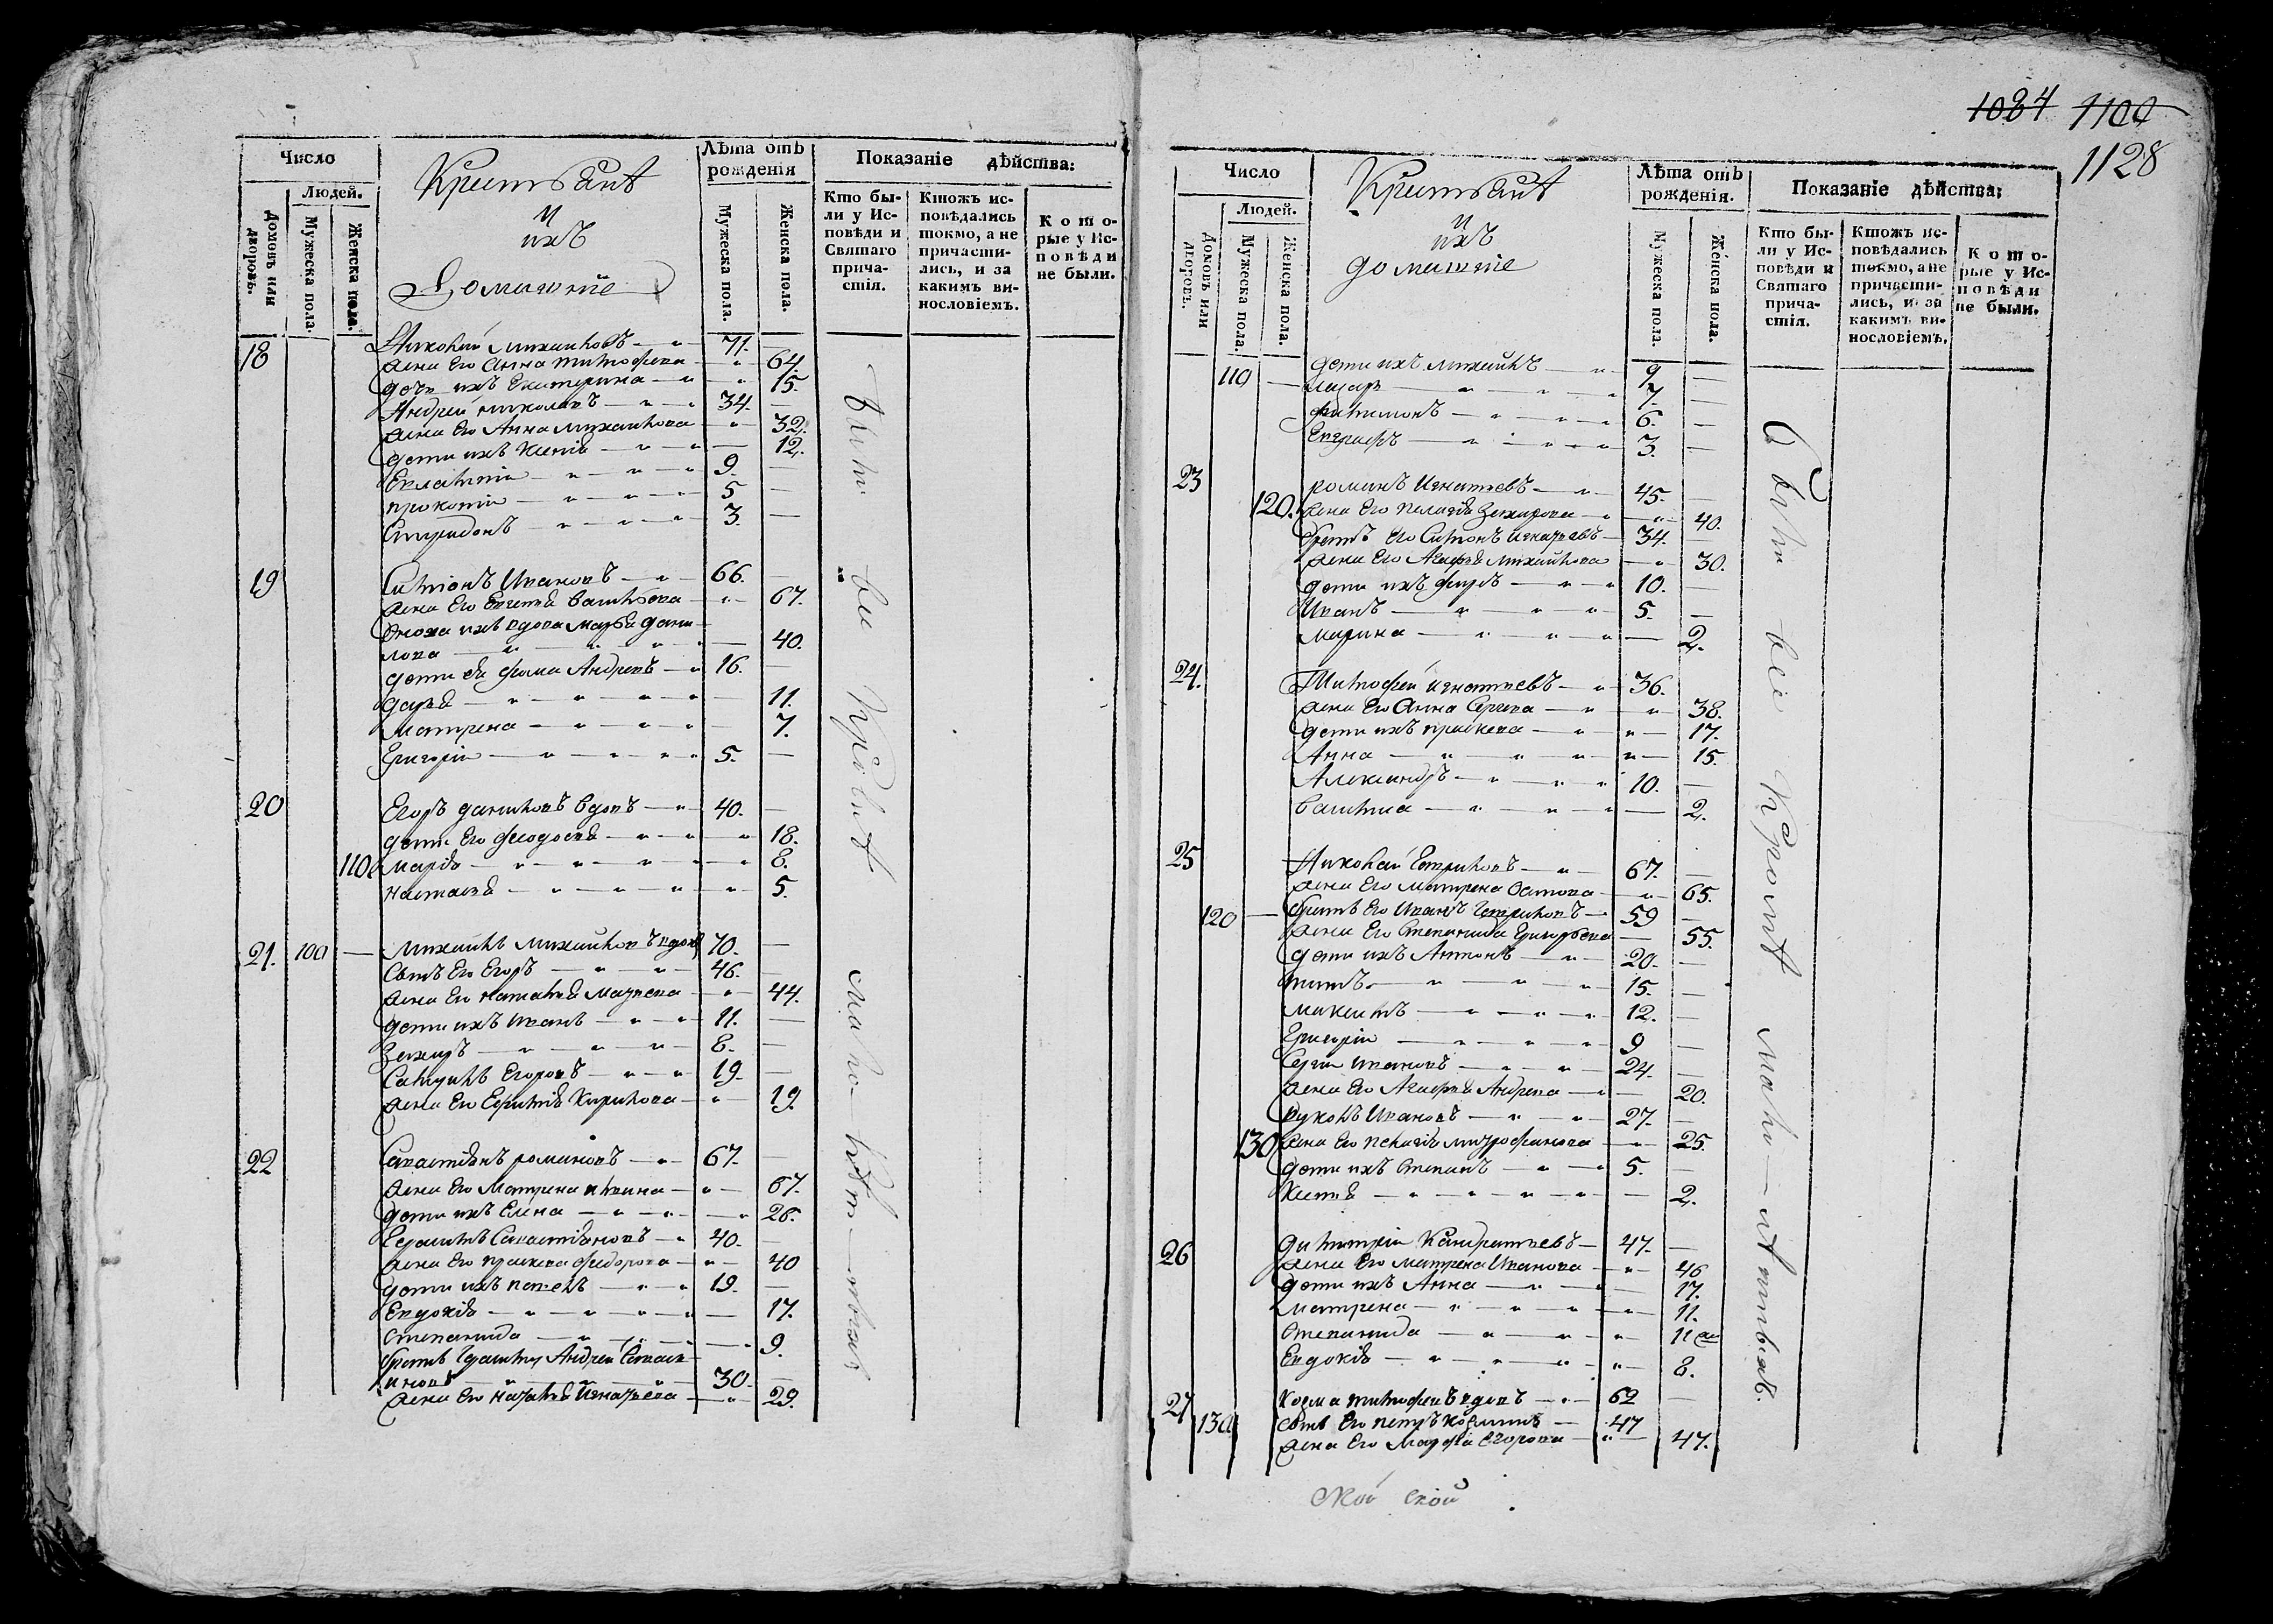 1084 1100
1128
Число
Людей.
Домовъ или дворовъ.
Мужеска пола.
Женска пола.
Крестьянѣ
и
ихъ
Домашніе
Лѣта отъ рожденія
Мужеска пола.
Женска пола.
Показаніе дѣйства:
Кто были у Исповѣди и Святаго причастія.
Ктожъ исповѣдались токмо, а не причастились, и за какимъ винословіемъ.
Которые у Исповѣди не были.
18 Николай Михайловъ 71.
жена Его Анна тимофеева 64.
дочь ихъ Екатерина 15.
Андрей николаевъ 34.
жена Его Анна михайлова 32.
дети ихъ Ксенія 12.
Евлампій 9.
прокопій 5
Спиридонъ 3.
19 Симіонъ Ивановъ 66.
жена Его Евгенья Васильева 67.
Сноха ихъ вдова марья дани
лова 40.
дети ея фома Андреевъ 16.
дарья 11.
Матрена 7.
Григорій 5.
20 Егоръ даниловъ вдовъ 40.
дети Его феодосья 18.
110 марья 8.
настасья 5.
21. 100 Михайлъ Михайловъ вдовъ 70.
Сынъ Его Егоръ 46.
жена Его наталья 44.
дети ихъ Иванъ 11.
Захаръ 8.
Самуилъ Егоровъ 19.
жена Его Кирилова 19.
22 Савастьянъ романовъ 67.
жена Его Матрена 67.
дети ихъ Елена 26.
Савастьяновъ 40.
жена Его прасковья федорова 40
дети ихъ павелъ 19.
Евдокія 17.
Степанида 9.
братъ Андрей Савасть
яновъ 30.
жена Его наталья Игнатьева 29.
были вси Кроме малолѣтныхъ
Число
Людей.
Домовъ или дворовъ.
Мужеска пола.
Женска пола.
Крестьянѣ
и
ихъ
домашніе
Лѣта отъ рожденія.
Мужеска пола.
Женска пола.
Показаніе дѣйства:
Кто были у Исповѣди и Святаго причастія.
Ктожъ исповѣдались токмо, а не причастились, и за какимъ винословіемъ.
Которые у Исповѣди не были.
дети ихъ михайлъ 9
110 Лазарь 7.
филимонъ 6.
Евграфъ 3.
23 романъ Игнатьевъ 45.
120. жена Его пелагея Захарова 40.
братъ Его Симіонъ игнатьевъ 34.
жена Его Агафья михайлова 30.
дети ихъ 10.
Иванъ 5.
марина 2.
24. Тимофей игнатьевъ 36.
жена Его Анна Сергеева 38.
дети ихъ прасковья 17.
Анна 15.
Александръ 10.
Василиса 2.
25 Николай Гавриловъ 67.
жена Его матрена 65.
120 братъ Его Иванъ Гавриловъ 59
жена Его Степанида Григорьева 55.
дети ихъ Антонъ 20.
титъ 15.
максимъ 12.
Григорій 9
Сергей ивановъ 24.
жена Его Агафья Андреева 20.
Ивановъ 27.
130 жена Его пелагея митрофанова 25.
дети ихъ Степанъ 5.
Ксенья 2.
26 димитрій Кандратьевъ 47.
жена Его матрена Иванова 46
дети ихъ Анна 17.
матрена 11.
Степанида 11
Евдокія 8.
27 козма тимофеевъ вдовъ 62
130 Сынъ Его петръ козминъ 47
жена Его Марфа егорова 47.
были вси Кромѣ малолѣтныхъ.